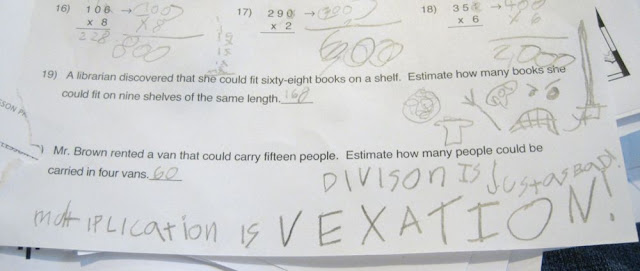 16) 106 → 100 17) 290 → 300 18) 35 → 400
x 8 x 8 x 2 x 6 x 6
800 600
19) A librarian discovered that she could fit sixty-eight books on a shelf. Estimate how many books she
could fit on nine shelves of the same length. 168
) Mr. Brown rented a van that could carry fifteen people. Estimate how many people could be
carried in four vans. 60
DIVISON IS JUST AS BAD!
multIPLICAtion is VEXATION!